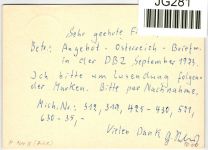 JG281
Sehr geehrte
Betr.: Angebot - Österreich - Briefm.
in der DBZ September 1973.
Ich bitte um Zusendung folgen-
der Marken. Bitte per Nachnahme.
Mich. Nr.: 312, 319, 425-430, 521,
630-35,-
Vielen Dank